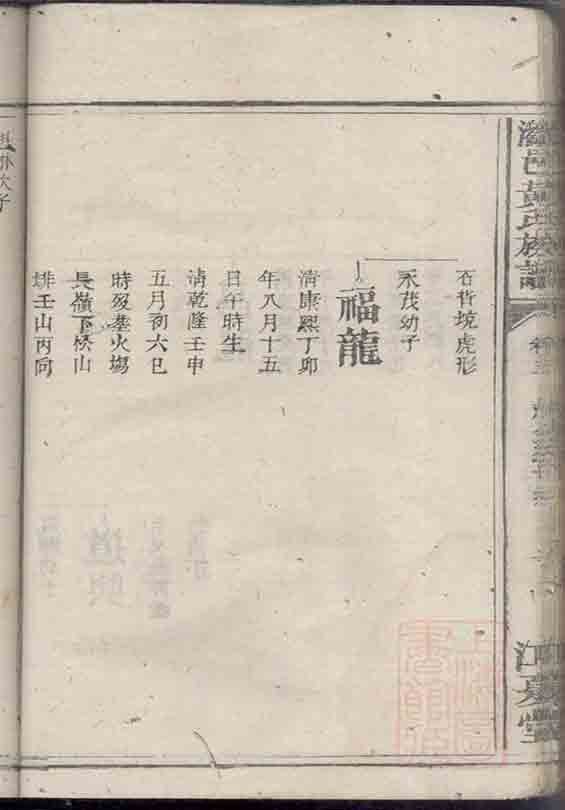 黃氏族譜
卷五
江夏堂
石背境虎形
永茂幼子
福龍
清康熙丁卯
年八月十五
日午時生
清乾隆壬申
五月初六巳
時歿塟火塲
長嶺下松山
排壬山丙向
次子
上海圖書館藏